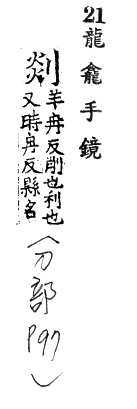 21 龍龕手鏡
剡
羊冉反削也利也
又時冉反縣名
(刀部 P97)